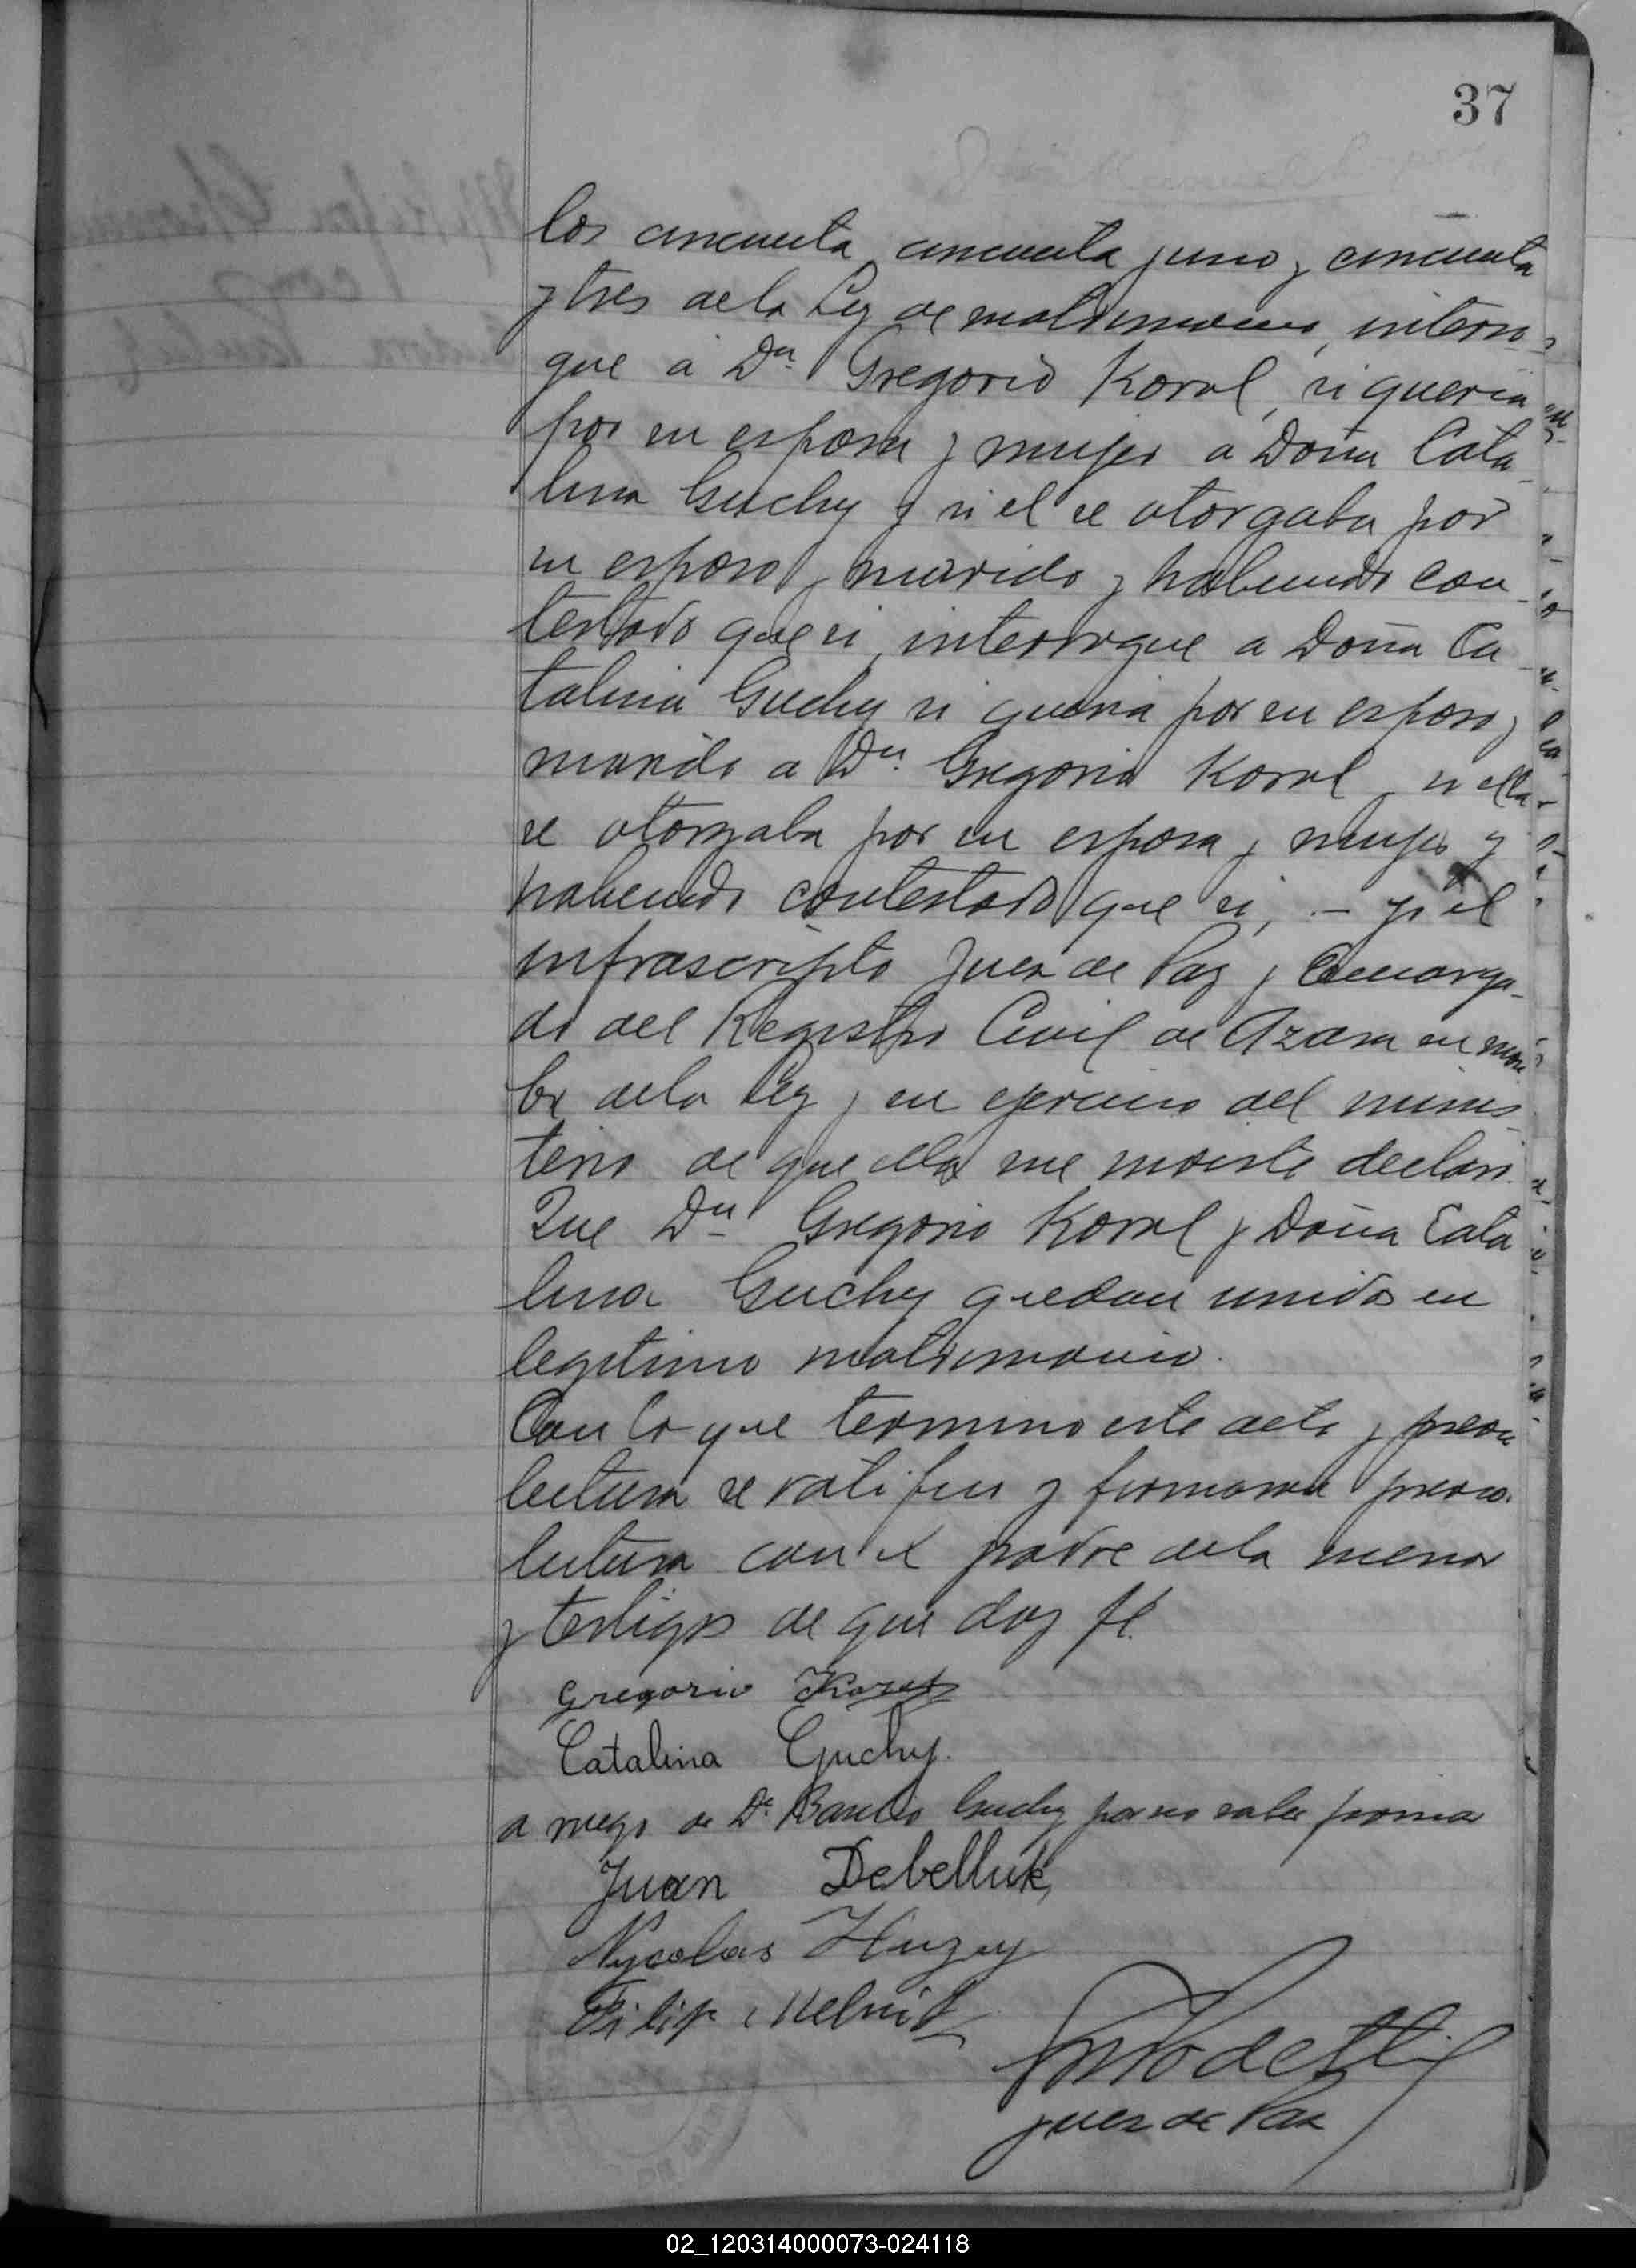 37
los cincuenta cincuenta y uno y cincuenta
y tres de la Ley de matrimonio, interro-
gue a Dn. Gregorio Korol, si queria
por su esposa y mujer a Doña Cata-
lina Guchy y si el se otorgaba por
su esposo y marido y habiendo con-
testado que si, interrogue a Doña Ca-
talina Guchy si queria por su esposo y
marido a Dn. Gregorio Korol y si ella
se otorgaba por su esposa y mujer y
habiendo contestado que si, - yo el
infrascripto Juez de Paz y Encarga-
do del Registro Civil de Azara en nom
bre de la Ley y en ejercicio del minis-
terio de que ella me inviste declaro.
Que Dn Gregorio Korol y Doña Cata
lina Guchy quedan unidos en
legitimo matrimonio.
Con lo que termino este acto y previa
lectura se ratifica y firmaron previa
lectura con el padre de la menor
y testigos de que doy fé.
Gregorio
Catalina Guchy.
a ruego de Dn. Guchy por no saber firmar
Juan Debelluk
Nycolas Huzey
Filip Melnik
Juez de Paz
02_120314000073-024118